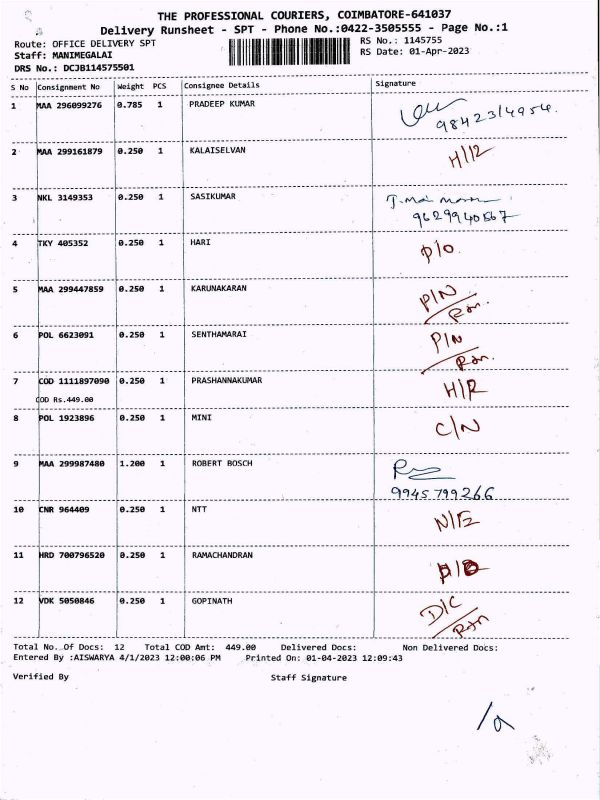 THE PROFESSIONAL COURIERS, COIMBATORE-641037
Delivery Runsheet - SPT - Phone No.:0422-3505555 - Page No.:1
Route: OFFICE DELIVERY SPT RS No.: 1145755
Staff: MANIMEGALAI RS Date: 01-Apr-2023
DRS No.: DCJB114575501
S No Consignment No Weight PCS Consignee Details Signature
1 MAA 296099276 0.785 1 PRADEEP KUMAR
9842314954.
2 MAA 299161879 0.250 1 KALAISELVAN
3 NKL 3149353 0.250 1 SASIKUMAR
9629940567
4 TKY 405352 0.250 1 HARI D/O
5 MAA 299447859 0.250 1 KARUNAKARAN P/N
6 POL 6623091 0.250 1 SENTHAMARAI P/N
7 COD 1111897090 0.250 1 PRASHANNAKUMAR H/R
COD Rs.449.00
8 POL 1923896 0.250 1 MINI C/N
9 MAA 299987480 1.200 1 ROBERT BOSCH
9945799266
10 CNR 964409 0.250 1 NTT
11 HRD 700796520 0.250 1 RAMACHANDRAN
12 VDK 5050846 0.250 1 GOPINATH D/C
Total No. Of Docs: 12 Total COD Amt: 449.00 Delivered Docs: Non Delivered Docs:
Entered By :AISWARYA 4/1/2023 12:00:06 PM Printed On: 01-04-2023 12:09:43
Verified By Staff Signature